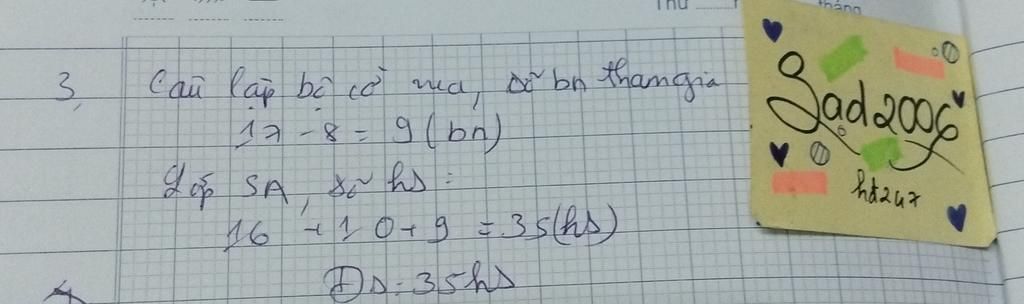 Thứ
tháng
3, Câu lạp bộ cờ vua, số bn tham gia
17 - 8 = 9 (bn)
Lớp 5A, số hs:
16 + 10 + 9 = 35 (hs)
Đs: 35 hs
Sad2006
hd247